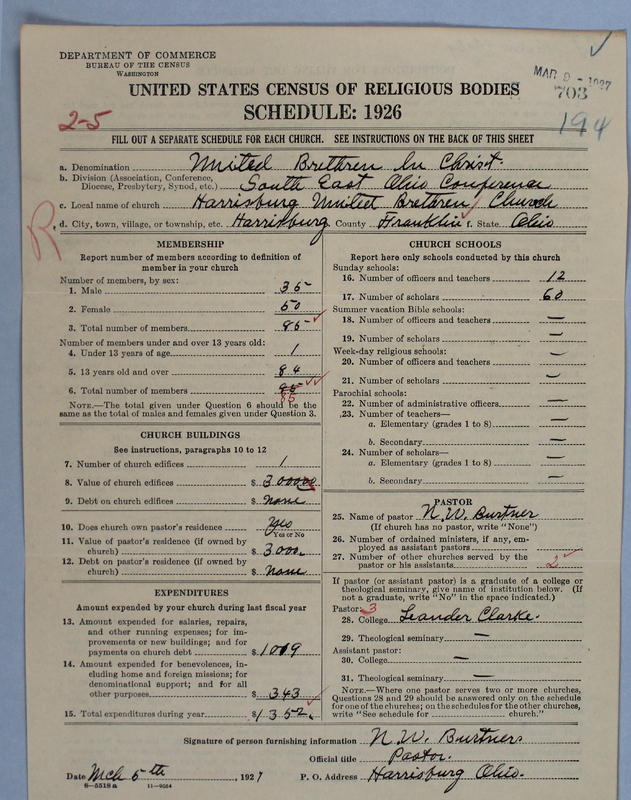 DEPARTMENT OF COMMERCE
BUREAU OF THE CENSUS
WASHINGTON
MAR 9 - 1927
703
194
UNITED STATES CENSUS OF RELIGIOUS BODIES
SCHEDULE: 1926
2-5
FILL OUT A SEPARATE SCHEDULE FOR EACH CHURCH. SEE INSTRUCTIONS ON THE BACK OF THIS SHEET
a. Denomination United Brethren In Christ.
b. Division (Association, Conference,
Diocese, Presbytery, Synod, etc.) South East Ohio Conference
c. Local name of church Harrisburg United Brethren Church
d. City, town, village, or township, etc. Harrisburg County Franklin f. State Ohio
R
MEMBERSHIP
Report number of members according to definition of
member in your church
Number of members, by sex:
1. Male 35
2. Female 50
3. Total number of members 85
Number of members under and over 13 years old:
4. Under 13 years of age 1
5. 13 years old and over 84
6. Total number of members 85
85
NOTE.—The total given under Question 6 should be the
same as the total of males and females given under Question 3.
CHURCH BUILDINGS
See instructions, paragraphs 10 to 12
7. Number of church edifices 1
8. Value of church edifices $ 30000
9. Debt on church edifices $ none
10. Does church own pastor's residence yes
Yes or No
11. Value of pastor's residence (if owned by
church) $ 3000
12. Debt on pastor's residence (if owned by
church) $ none
EXPENDITURES
Amount expended by your church during last fiscal year
13. Amount expended for salaries, repairs,
and other running expenses; for im-
provements or new buildings; and for
payments on church debt $ 1009
14. Amount expended for benevolences, in-
cluding home and foreign missions; for
denominational support; and for all
other purposes $ 343
15. Total expenditures during year $ 1352
CHURCH SCHOOLS
Report here only schools conducted by this church
Sunday schools:
16. Number of officers and teachers 12
17. Number of scholars 60
Summer vacation Bible schools:
18. Number of officers and teachers —
19. Number of scholars —
Week-day religious schools:
20. Number of officers and teachers —
21. Number of scholars —
Parochial schools:
22. Number of administrative officers —
23. Number of teachers—
a. Elementary (grades 1 to 8) —
b. Secondary —
24. Number of scholars—
a. Elementary (grades 1 to 8) —
b. Secondary —
PASTOR
25. Name of pastor N. W. Burtner
(If church has no pastor, write "None")
26. Number of ordained ministers, if any, em-
ployed as assistant pastors
27. Number of other churches served by the
pastor or his assistants 2
If pastor (or assistant pastor) is a graduate of a college or
theological seminary, give name of institution below. (If
not a graduate, write "No" in the space indicated.)
Pastor: 3
28. College Leander Clarke.
29. Theological seminary —
Assistant pastor:
30. College —
31. Theological seminary —
NOTE.—Where one pastor serves two or more churches,
Questions 28 and 29 should be answered only on the schedule
for one of the churches; on the schedules for the other churches,
write "See schedule for church."
Signature of person furnishing information N. W. Burtner
Official title Pastor.
Date Mch 5th, 1927 P. O. Address Harrisburg Ohio.
8—5518 a 11—9054